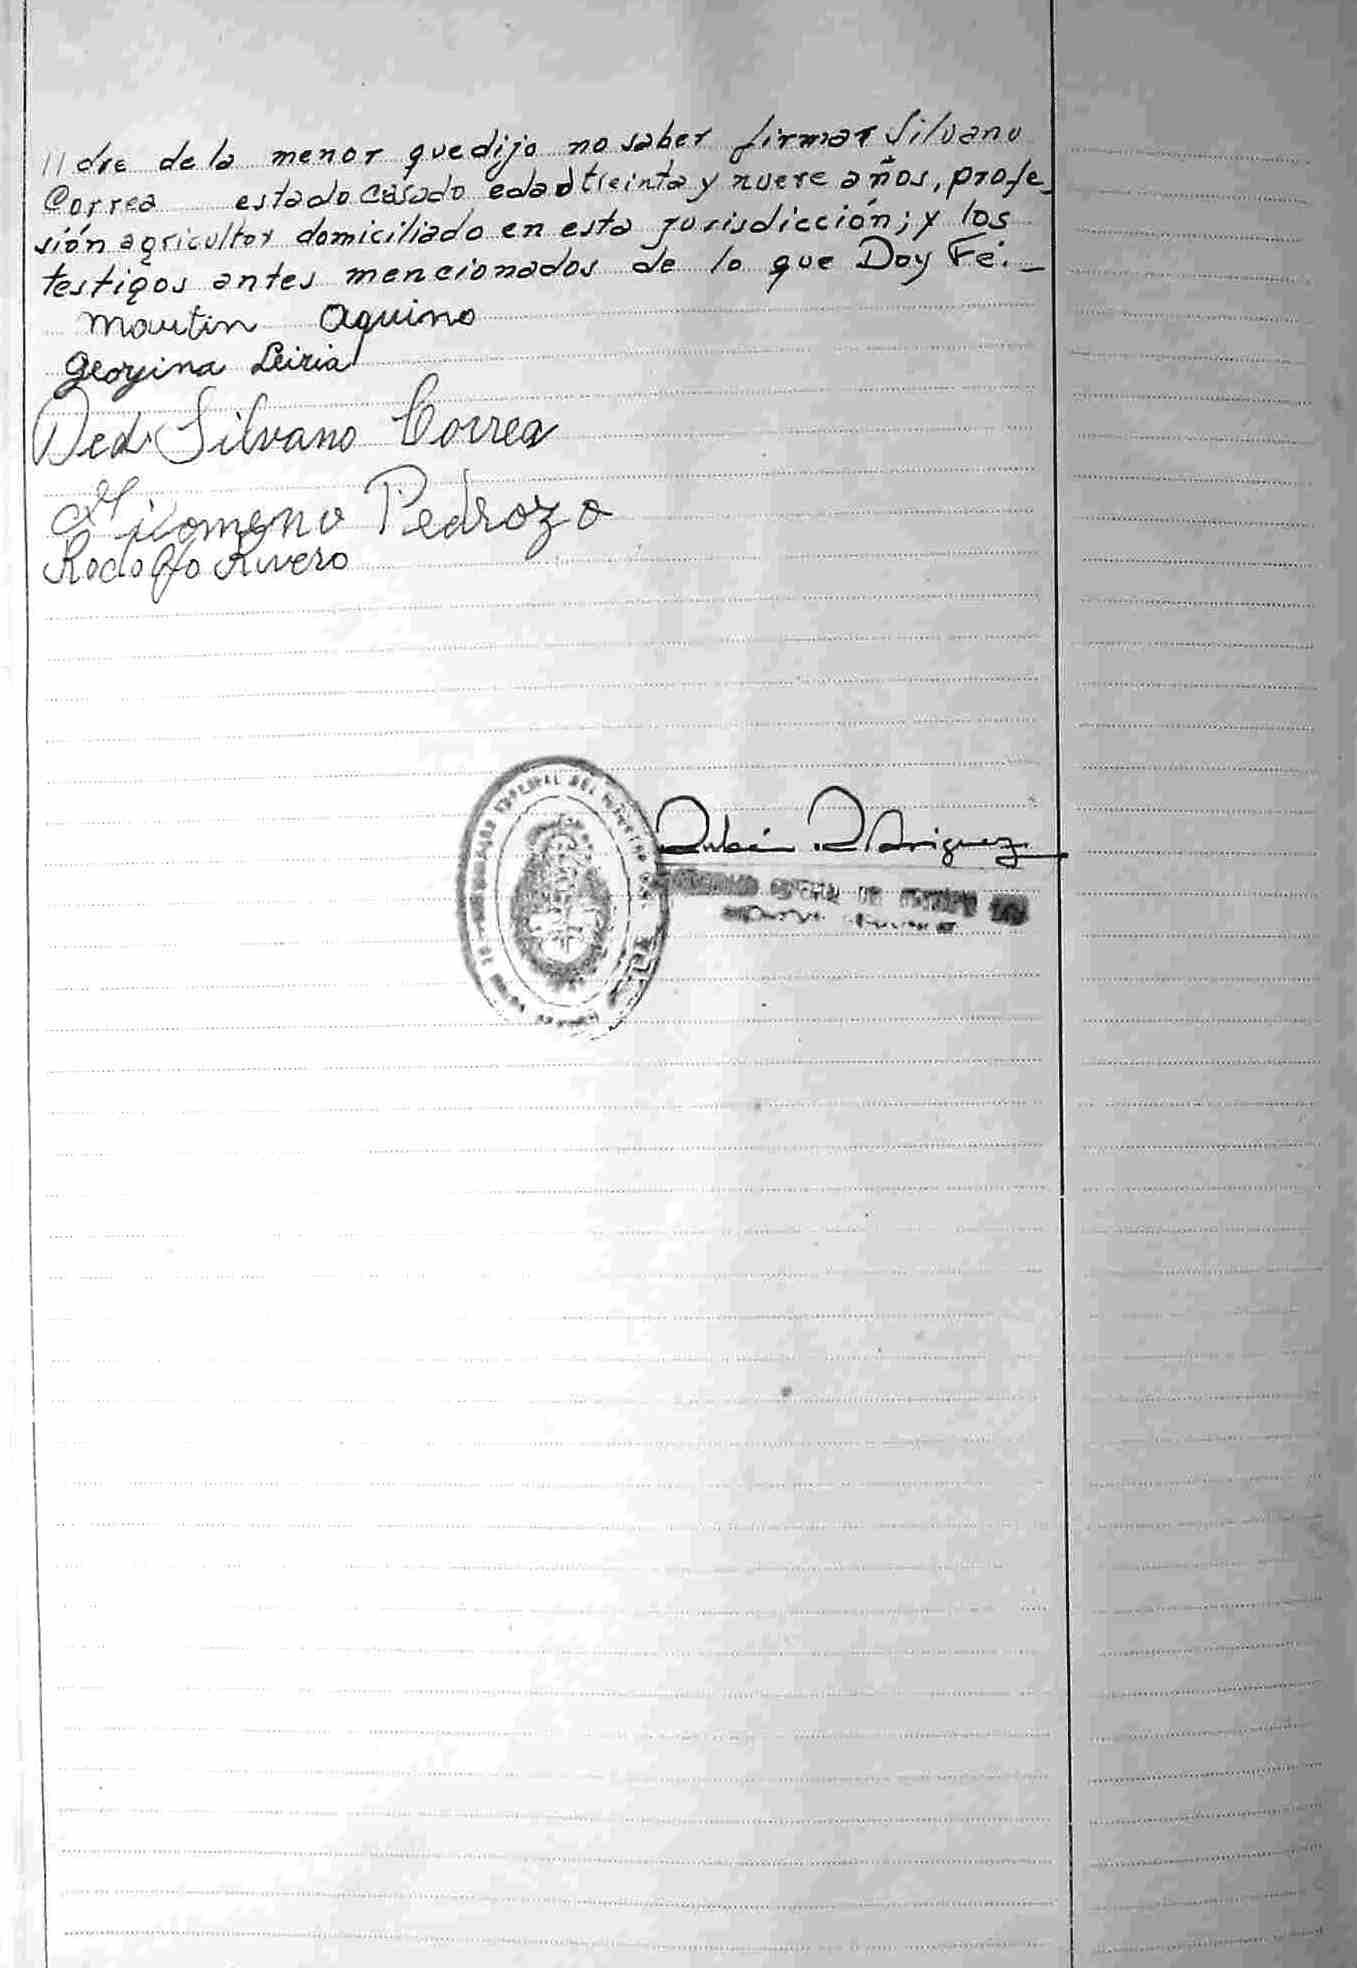 // dre de la menor que dijo no saber firmar Silvano
Correa estado casado edad treinta y nueve años, profe_
sión agricultor domiciliado en esta jurisdicción; y los
testigos antes mencionados de lo que Doy Fé._
Martin Aquino
Georgina Leiria
Silvano Correa
Filomeno Pedrozo
Rodolfo Rivero
Rubén Rodriguez